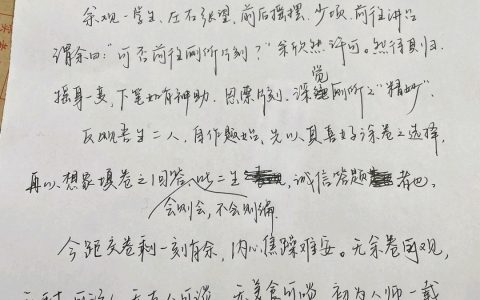 余观一学生，左右张望，前后摇摆，少顷，前往讲台
谓余曰："可否前往厕所片刻？"余欣然许可。然待其归，
摇身一变，下笔如有神助。思索片刻，深觉厕所之"精妙"。
反观吾生二人，自作题始，先以真喜好涂卷之选择，
再以想象填卷之回答，此二生，诚信答题者也，
会则会，不会则编。
今距交卷剩一刻有余，内心焦躁难安。无余卷可观，
无美食可嗜，初为人师一载